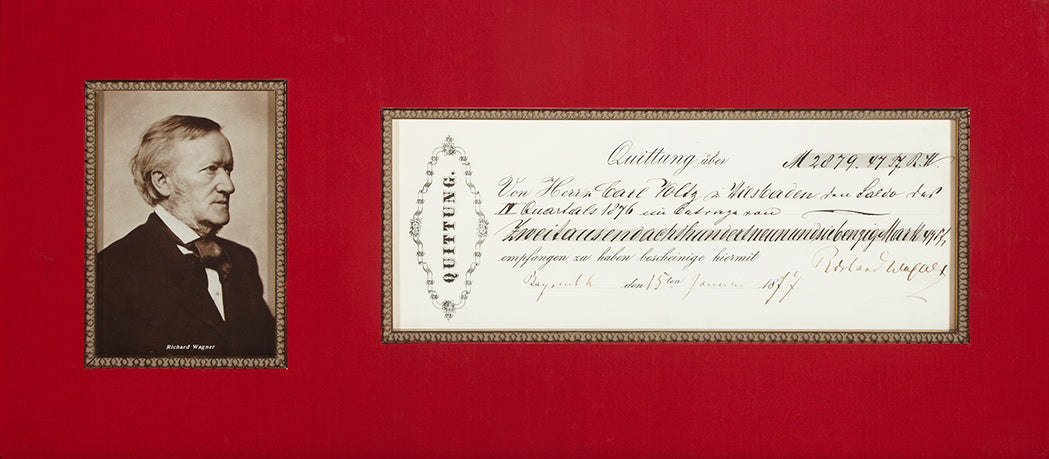 Richard Wagner
QUITTUNG.
Quittung über M 2879. 47 Pf. R. W
Von Herrn Carl Voltz in Wiesbaden den Saldo des
IV Quartals 1876 im Betrage von
Zweitausendachthundertneunundsiebenzig Mark 47 Pf,
empfangen zu haben bescheinige hiermit
Richard Wagner
Bayreuth den 15ten Januar 1877